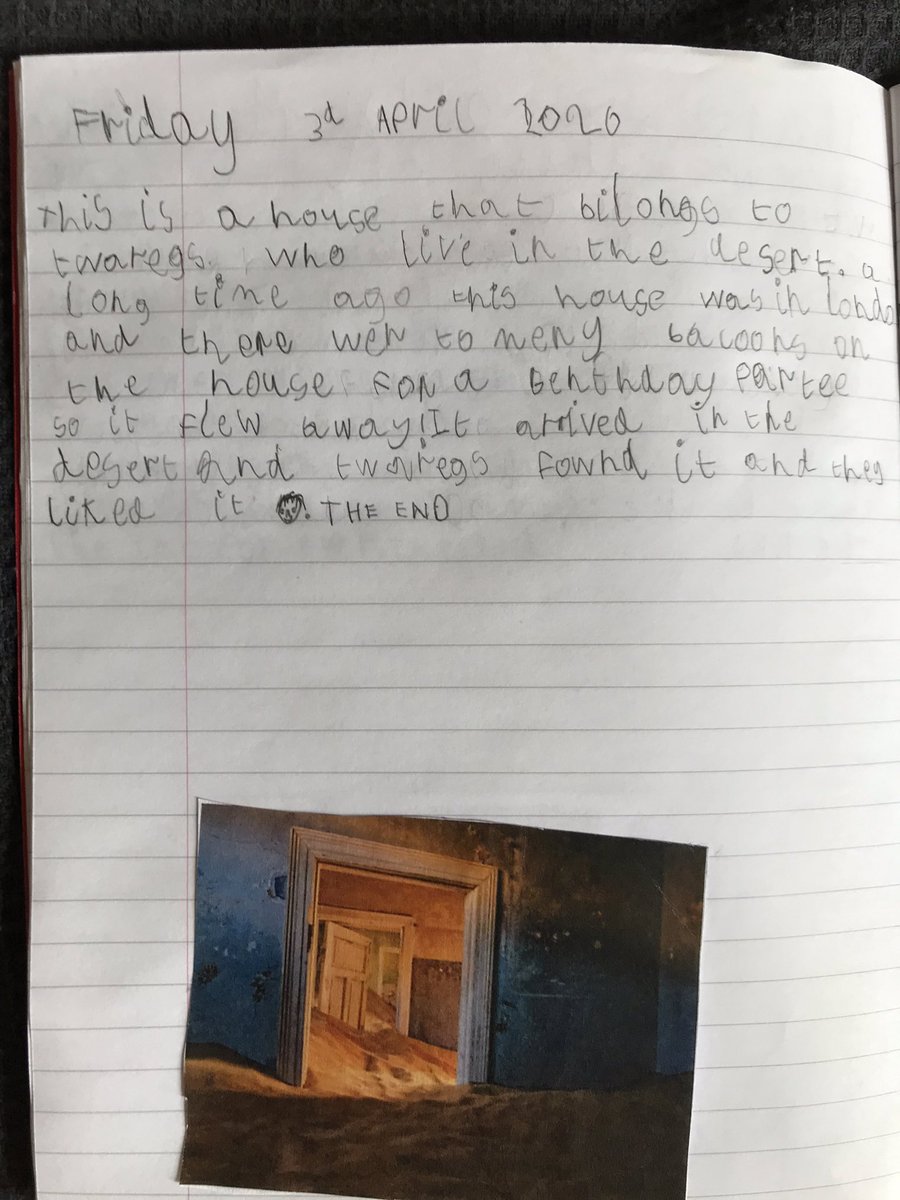 Friday 3d April 2020
This is a house that bilongs to
twaregs. who live in the desert. a
long time ago this house was in londo
and there wer to meny baloons on
the house for a Benthday Partee
so it flew away! It arrived in the
desert and twaregs fownd it and they
liked it. THE END